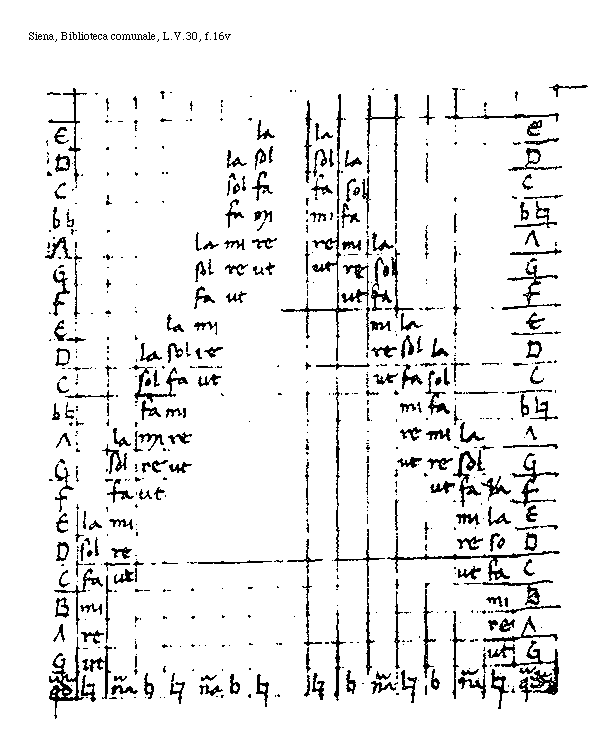 Siena, Biblioteca comunale, L.V.30, f.16v
E la la e
D la sol sol la D
C sol fa fa sol C
b♮ fa mi mi fa b♮
A la mi re re mi la A
G sol re ut ut re sol G
F fa ut ut fa F
E la mi mi la E
D la sol re re sol la D
C sol fa ut ut fa sol C
b♮ fa mi mi fa b♮
A la mi re re mi la A
G sol re ut ut re sol G
F fa ut ut fa F
E la mi mi la E
D sol re re so D
C fa ut ut fa C
B mi mi B
A re re A
G ut ut G
♮ na b ♮ na b ♮ ♮ b na ♮ b na ♮